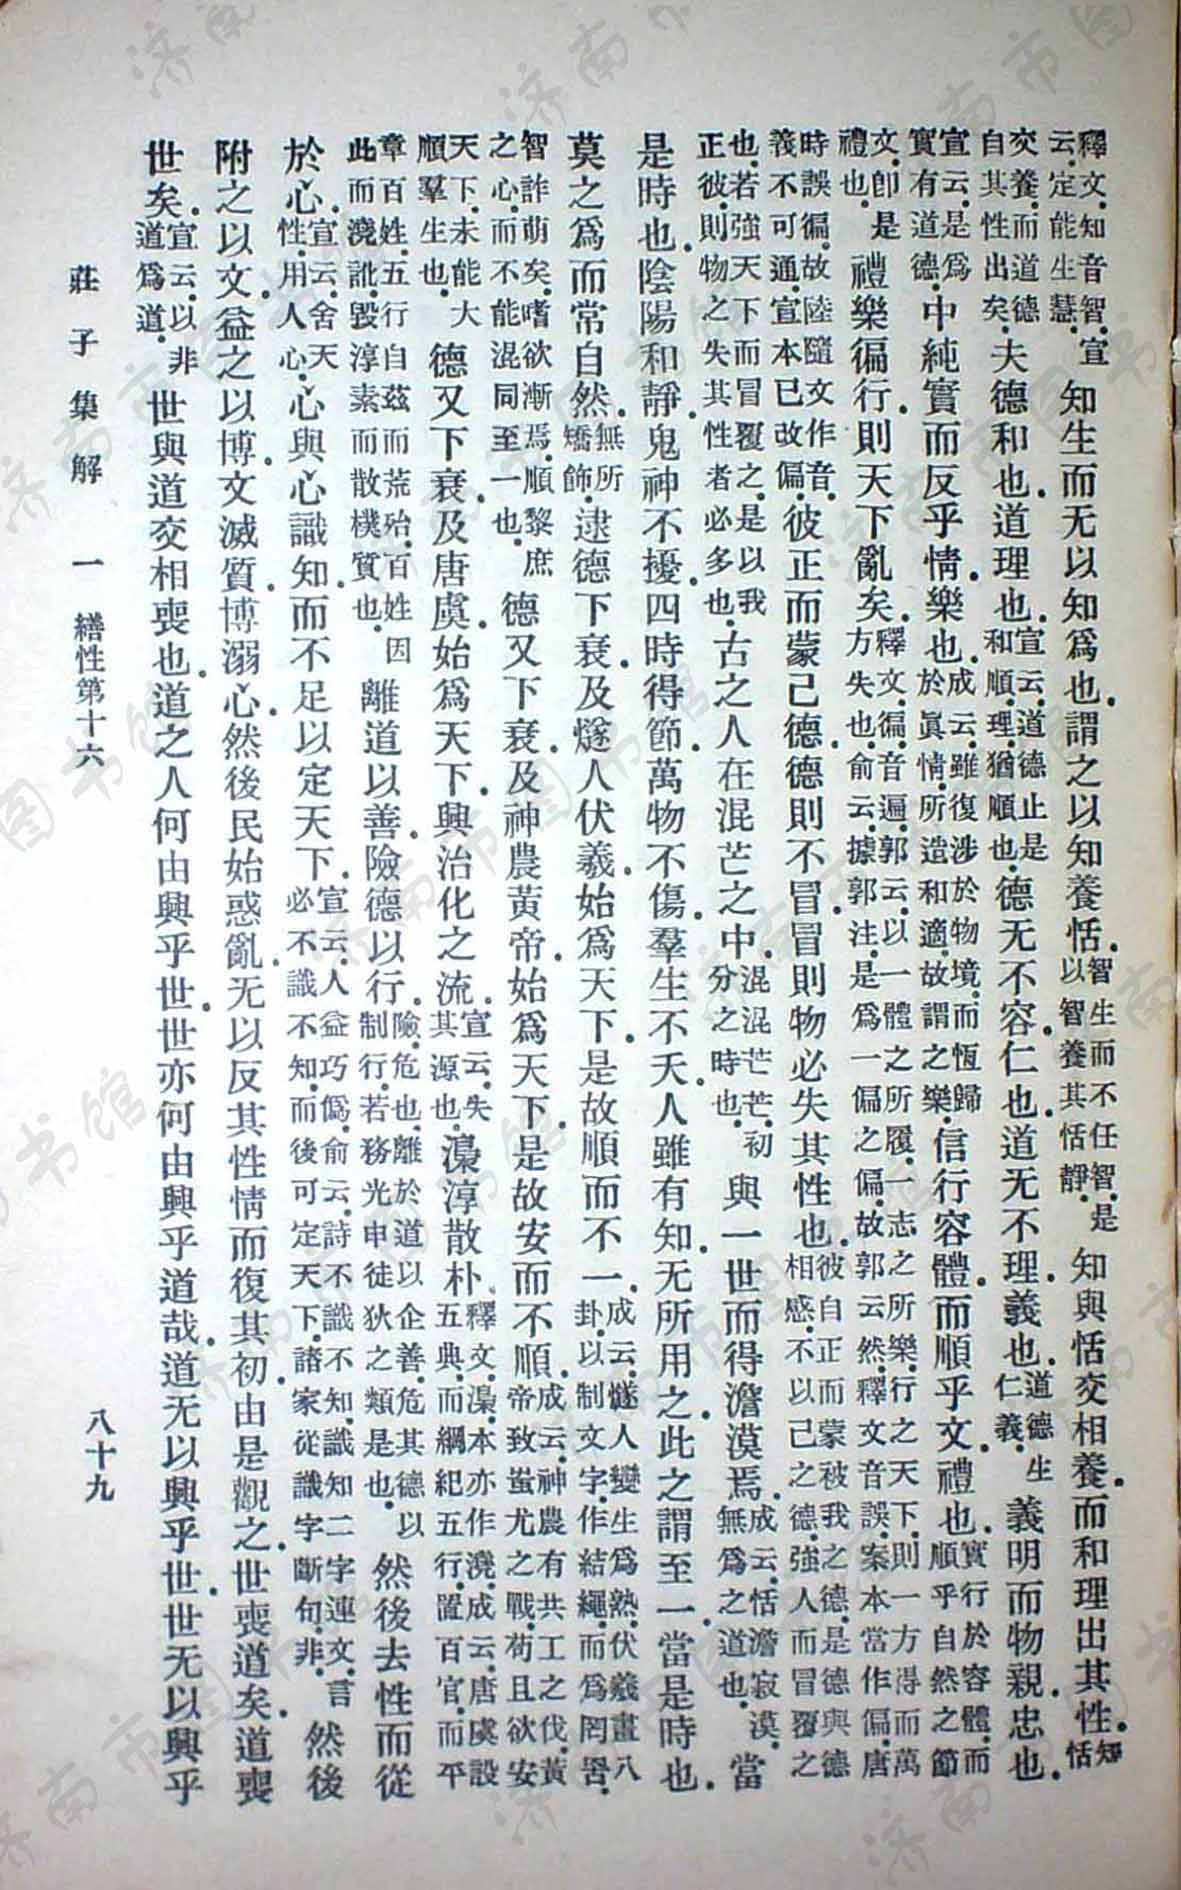 釋文。知音智。宣云。定能生慧。知生而无以知爲也。謂之以知養恬。智生而不任智。是以智養其恬靜。知與恬交相養。而和理出其性。知恬
交養。而道德自其性出矣。夫德和也。道理也。宣云。道德止是和順。理猶順也。德无不容。仁也。道无不理。義也。道德生仁義。義明而物親。忠也。
宣云。是爲實有道德。中純實而反乎情。樂也。成云。雖復涉於物境。而恆歸於眞情。所造和適。故謂之樂。信行容體。而順乎文。禮也。實行於容體。而順乎自然之節
文。卽是禮也。禮樂徧行。則天下亂矣。釋文。徧音遍。郭云。以一體之所履。一志之所樂。行之天下。則一方得而萬方失也。俞云。據郭注。是爲一偏之偏。故郭云然。釋文音誤。案本當作偏。唐
時誤徧。故陸隨文作音。義不可通。宣本已改偏。彼正而蒙己德。德則不冒。冒則物必失其性也。彼自正而蒙被我之德。是德與德相感。不以己之德。強人而冒覆之
也。若強天下而冒覆之。是以我正彼。則物之失其性者必多也。古之人在混芒之中。混混芒芒。初分之時也。與一世而得澹漠焉。成云。恬澹寂漠。無爲之道也。當
是時也。陰陽和靜。鬼神不擾。四時得節。萬物不傷。羣生不夭。人雖有知。无所用之。此之謂至一。當是時也。
莫之爲而常自然。無所矯飾。逮德下衰。及燧人伏羲。始爲天下。是故順而不一。成云。燧人變生爲熟。伏羲畫八卦。以制文字。作結繩。而爲罔罟。
智詐萌矣。嗜欲漸焉。順黎庶之心。而不能混同至一也。德又下衰。及神農黃帝。始爲天下。是故安而不順。成云。神農有共工之伐。黃帝致蚩尤之戰。苟且欲安
天下。未能大順羣生也。德又下衰。及唐虞。始爲天下。興治化之流。宣云。失其源也。淳散朴。釋文。本亦作澆。成云。唐虞設五典。而綱紀五行。置百官。而平
章百姓。五行自茲而荒殆。百姓因此而澆訛。毀淳素而散樸質也。離道以善。險德以行。險。危也。離於道以企善。危其德以制行。若務光申徒狄之類是也。然後去性而從
於心。宣云。舍天性。用人心。心與心識知。而不足以定天下。宣云。人益巧僞。俞云。詩。不識不知。識知二字連文。言必不識不知。而後可定天下。諸家從識字斷句。非。然後
附之以文。益之以博。文滅質。博溺心。然後民始惑亂。无以反其性情而復其初。由是觀之。世喪道矣。道喪
世矣。宣云。以非道爲道。世與道交相喪也。道之人何由興乎世。世亦何由興乎道哉。道无以興乎世。世无以興乎
莊子集解 一 繕性第十六 八十九